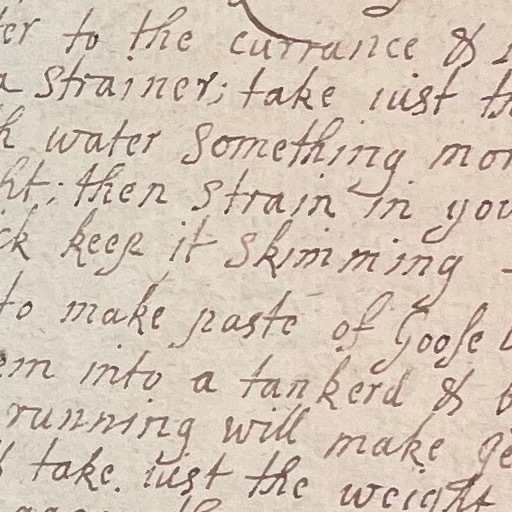 ter to the currance &
a strainer; take iust th
h water something mor
ht; then strain in you
ck keep it skimming -
to make paste of Goose b
em into a tankerd & b
running will make ge
& take iust the weight